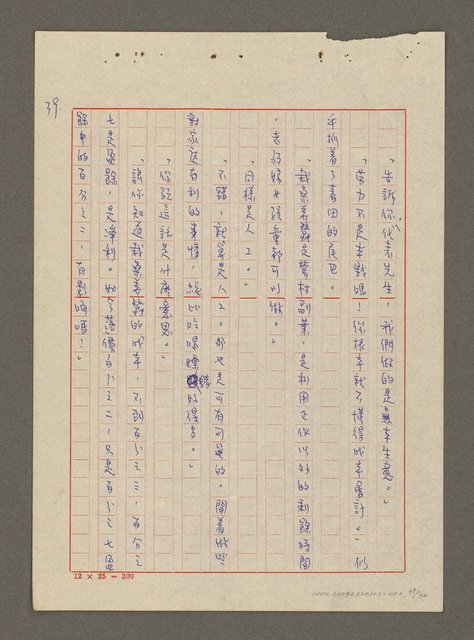 39.
「告訴你代表先生，我們做的是無本生意。」
「勞力不是本錢嗎！你根本就不懂得成本會計。」似
乎抓着了青田的尾巴。
「栽桑養蠶是農村副業，是利用正作以外的剩餘時間
。老弱婦女孩童都可以做。」
「同樣是人工。」
「不錯，就算是人工。那也是可有可無的。閒着做些
對家庭有利的事情，總比吃喝嫖賭好得多。」
「你說這話是什麼意思。」
「讓你知道栽桑養蠶的成本，不到百分之三，百分之
七是盈餘，是淨利。如今落價百分之二，只是百分之七盈
餘中的百分之二，有影響嗎！」
12 × 25 = 300